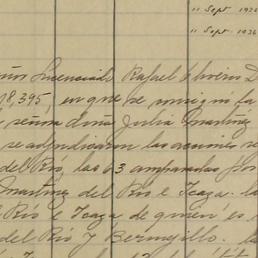 11 Sept 1936
11 Sept 1936
Licenciado Rafael Oliveros D
98,395, en que se consignó la
señora doña Julia Martínez
se adjudicaron las acciones se
del Río, las 63 amparadas por
Martínez del Río e Icaza. la
Río e Icaza de quien es
del Río y Bermejillo. la